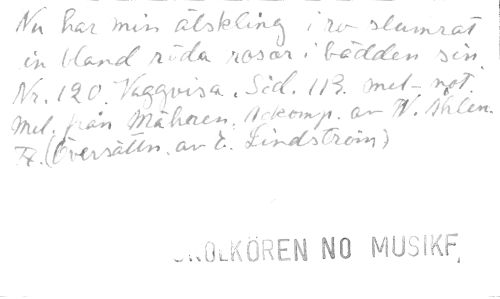 Nu har min älskling i ro slumrat
in bland röda rosor i bädden sin.
Nr. 120. Vaggvisa. Sid. 113. mel-not.
Mel. från Mähren. Ackomp. av W. Ahlen.
(Översättn. av E. Lindström)
SKOLKÖREN NO MUSIKF,